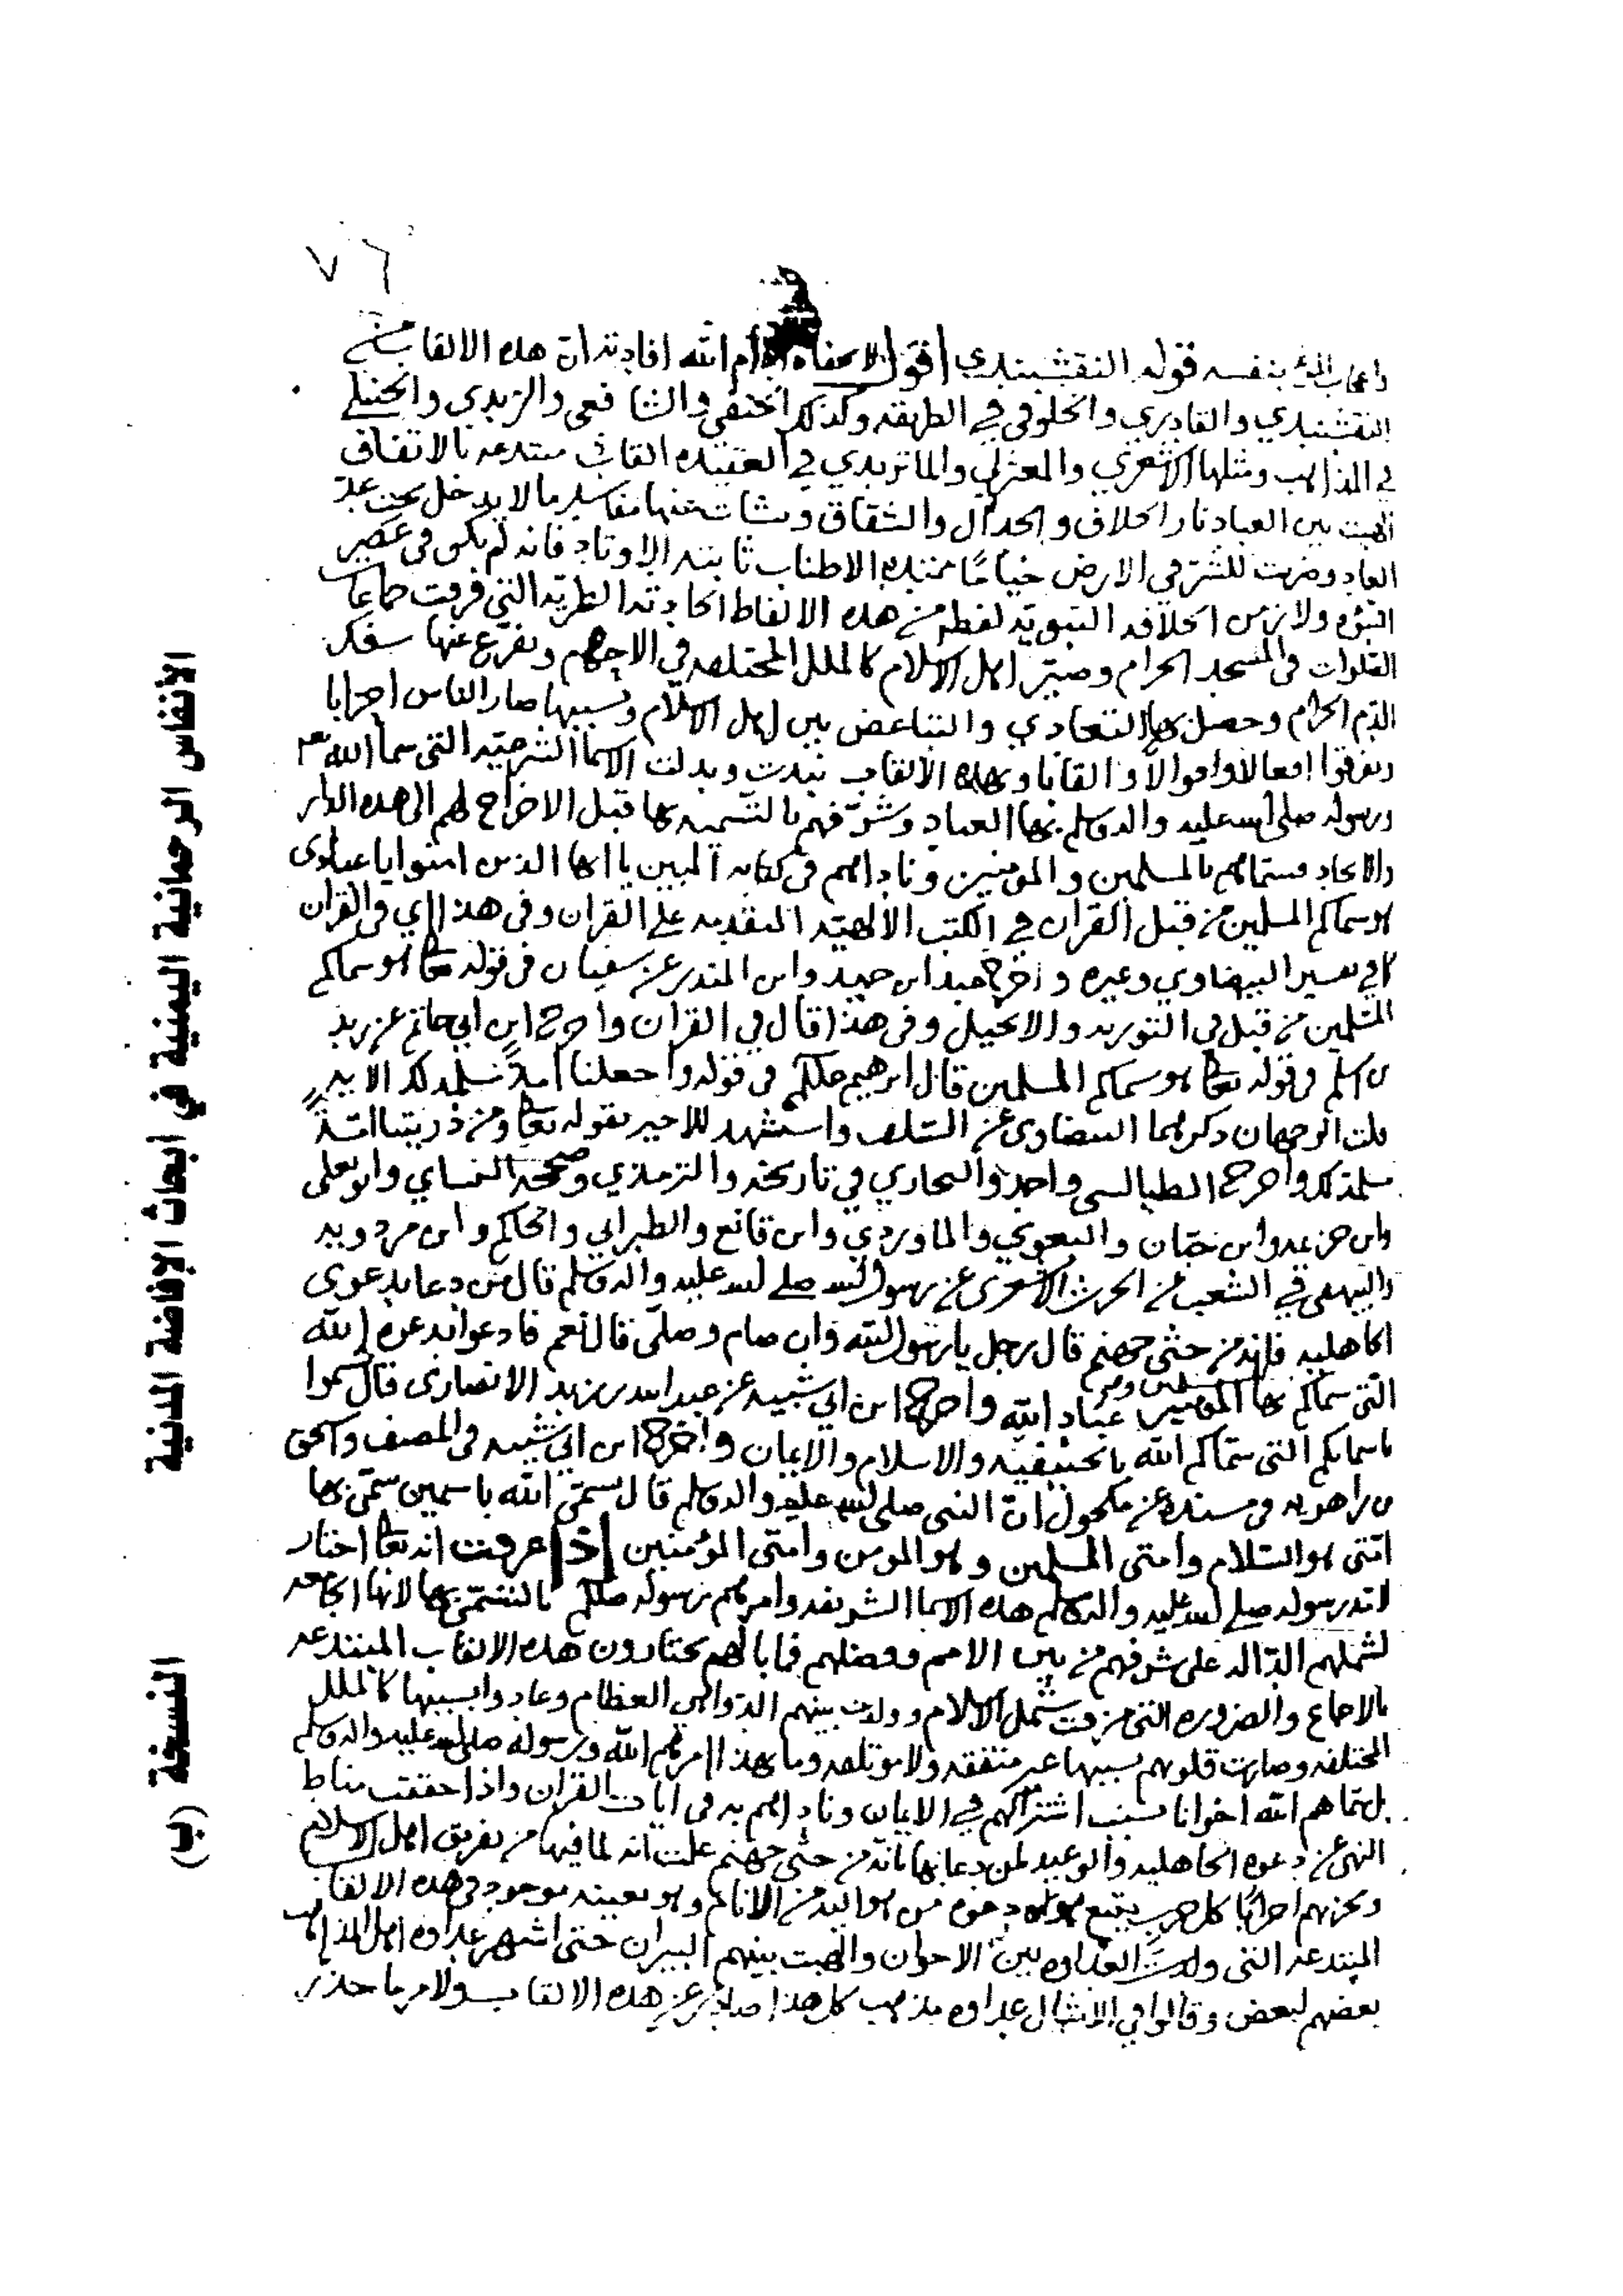 ٧٦
واعجاب المرء بنفسه قوله النقشبندي اقول لا خفاء ادام الله افادته ان هذه الالقاب من
النقشبندي والقادري والخلوتي في الطريقه وكذلك الحنفي والشافعي والزيدي والحنبلي
في المذاهب ومثلها الاشعري والمعتزلي والماتريدي في العقيده القاب مبتدعه بالاتفاق
الهبت بين العباد نار الخلاف والجدال والشقاق ونشات عنها مفاسد ما لا يدخل تحت عد
العاد وضربت للشر في الارض خياما ممتدة الاطناب ثابتة الاوتاد فانه لم يكن في عصر
النبوة ولا زمن الخلافه النبويه لفظ من هذه الالفاظ الحادثه الطريه التي فرقت جماعات
الصلوات في المسجد الحرام وصيّر اهل الاسلام كالملل المختلفه في الاحكام وتفرع عنها سفك
الدم الحرام وحصل بها التعادي والتباغض بين اهل الاسلام وبسببها صار الناس احزابا
وتفرقوا افعالا واقوالا والقابا وبهذه الالقاب نبذت وبدلت الاسما الشرعيه التي سما الله بها
ورسوله صلى الله عليه واله وسلم بها العباد وشرّفهم بالتسميه بها قبل الاخراج لهم الى هذه الدار
والايجاد فسماهم بالمسلمين والمومنين وناداهم في كتابه المبين يا ايها الذين امنوا يا عبادي
هو سماكم المسلمين من قبل القران في الكتب الالهيه المتقدمه على القران وفي هذا اي في القران
كما في تفسير البيضاوي وغيره واخرج عبد ابن حميد وابن المنذر عن سفيان في قوله تعالى هو سماكم
المسلمين من قبل في التوريه والانجيل وفي هذا قال في القران واخرج ابن ابي حاتم عن زيد
بن اسلم في قوله تعالى هو سماكم المسلمين قال ابرهيم صللم في قوله واجعلنا امة مسلمة لك الايه
قلت الوجهان ذكرهما البيضاوي عن السلف واستشهد للاخير بقوله تعالى ومن ذريتنا امة
مسلمة لك واخرج الطيالسي واحمد والبخاري في تاريخه والترمذي وصححه النسائي وابو يعلى
وابن خزيمه وابن حبان والبغوي والماوردي وابن قانع والطبراني والحاكم وابن مردويه
والبيهقي في الشعب عن الحرث الاشعري عن رسول الله صلى الله عليه واله وسلم قال من دعا بدعوى
الجاهليه فانه من جثى جهنم قال رجل يا رسول الله وان صام وصلى قال نعم فادعوا بدعوة الله
التي سماكم بها المسلمين والمومنين عباد الله واخرج ابن ابي شيبه عن عبد الله بن يزيد الانصاري قال سموا
باسمائكم التي سماكم الله بالحنيفيه والاسلام والايمان واخرج ابن ابي شيبه في المصنف واسحق
بن راهويه في مسنده عن مكحول ان النبي صلى الله عليه واله وسلم قال تسمى الله باسمين سمى بهما
امتي هو السلام وامتي المسلمين وهو المومن وامتي المؤمنين إذا عرفت انه تعالى اختار
لامة رسوله صلى الله عليه واله وسلم هذه الاسما الشريفه وامرهم رسوله صللم بالتسمي بها لانها الجامعه
لشملهم الدّاله على شرفهم من بين الامم وفضلهم فما بالهم يختارون هذه الالقاب المبتدعه
بالاجماع والضروره التي مزقت شمل الاسلام وولدت بينهم الدواهي العظام وعادوا بسببها كالملل
المختلفه وصارت قلوبهم بسببها غير متفقه ولا موتلفه وما بهذا امرهم الله ورسوله صلى الله عليه واله وسلم
بل سماهم الله اخوانا بسبب اشتراكهم في الايمان وناداهم به في ايات القران واذا حققت مناط
النهي عن دعوة الجاهليه والوعيد لمن دعا بها بانه من جثى جهنم علمت انه لما فيها من تفريق اهل الاسلام
وتحزبهم احزابا كل حزب يتبع دعوة من هو اليه من الانام وهو بعينه موجود في هذه الالقاب
المبتدعه التي ولدت العداوه بين الاخوان والهبت بينهم النيران حتى اشهر عداوة اهل المذاهب
بعضهم لبعض وقالوا في الامثال عداوه مذهب كل هذا صادر عن هذه الالقاب ولامر ما حذر
الأنفاس الرحمانية اليمنية في أبحاث الإفاضة المدنية
النسخة (ب)